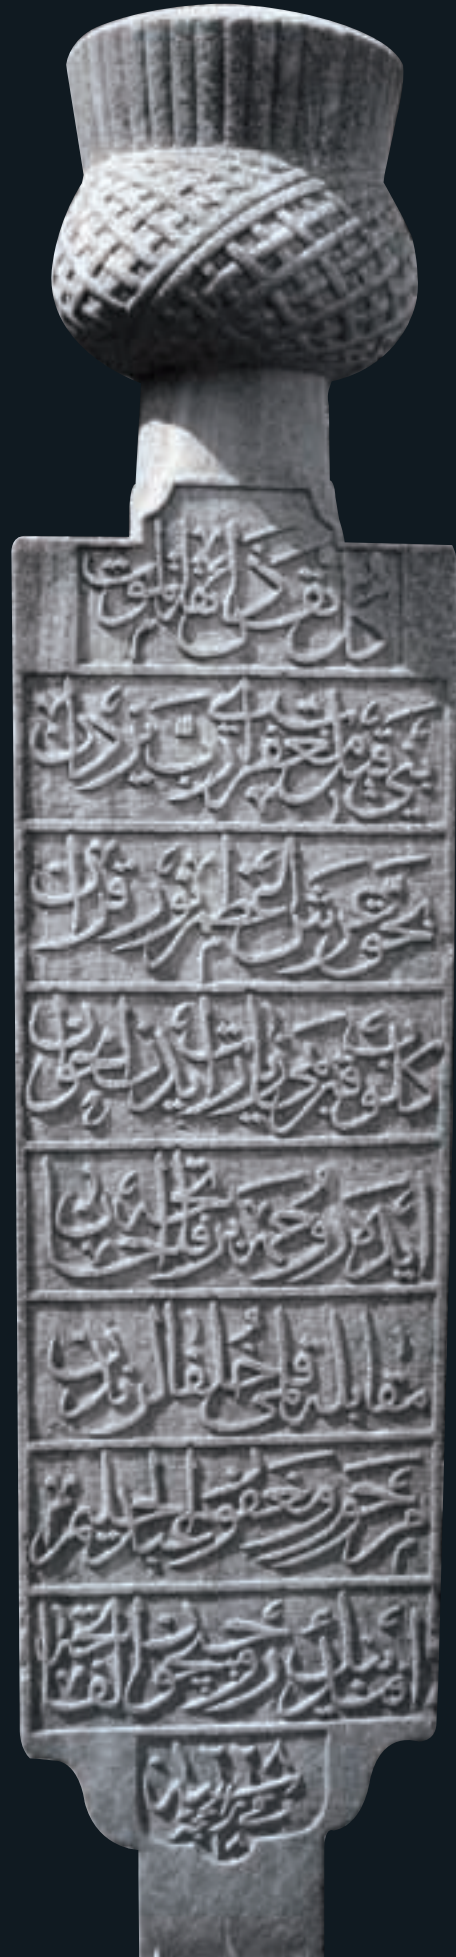 كل نفس ذائقة الموت
بني قيل مغفرت اي رب يزدان
بحق عرش اعظم نور قرآن
كلوب قبرمي زيارت ايدن اخوان
ايده روحمه بر فاتحه احسان
مقابله قلمي خلفالرندن
مرحوم و مغفور عبد الحليم
افندينك روحيچون الفاتحه
سنه